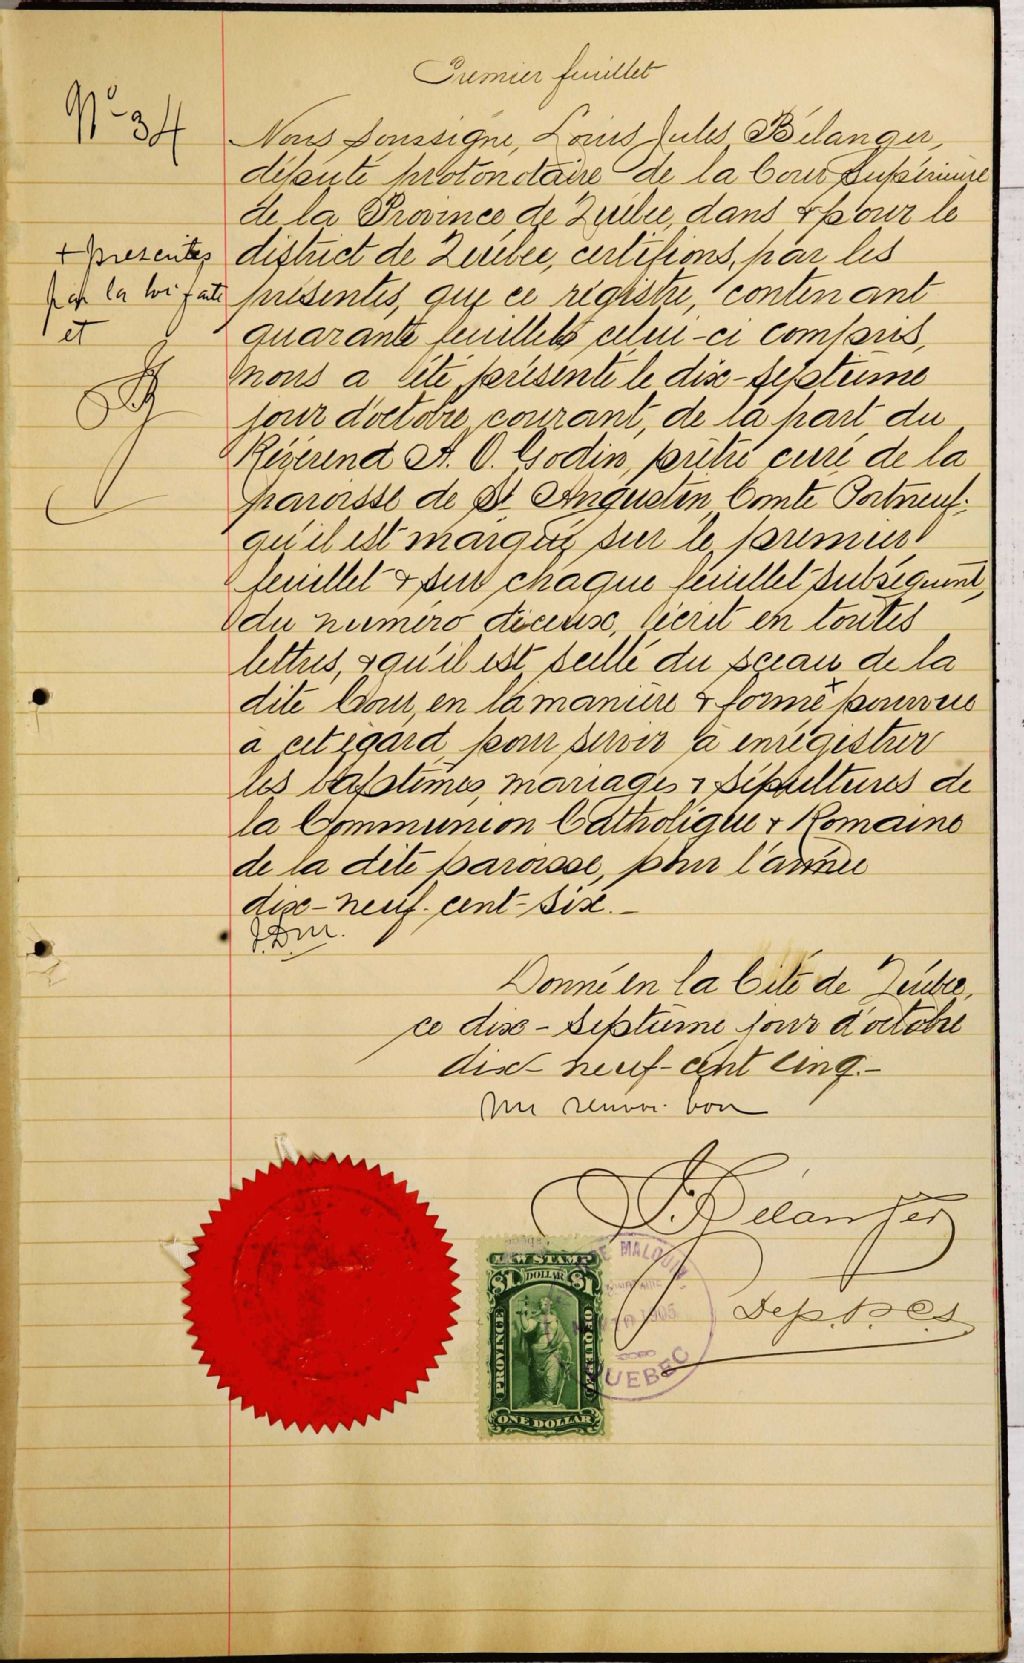 Premier feuillet
No 34
Nous soussigné, Louis Jules Bélanger,
député protonotaire de la Cour Supérieure
de la Province de Québec, dans & pour le
district de Québec, certifions, par les
présentes, que ce régistre, contenant
quarante feuillets celui-ci compris,
nous a été présenté le dix-septième
jour d'octobre courant, de la part du
Révérend A. O. Godin, prêtre curé de la
paroisse de St Augustin, Comté Portneuf;
qu'il est marqué sur le premier
feuillet & sur chaque feuillet subséquent,
du numéro d'iceux, écrit en toutes
lettres, & qu'il est scellé du sceau de la
dite Cour, en la manière & forme + pourvue
à cet égard pour servir à enrégistrer
les baptêmes, mariages & sépultures de
la Communion Catholique & Romaine
de la dite paroisse, pour l'année
dix-neuf-cent-six.-
+ présentes
par la loi faite
et
Donné en la Cité de Québec,
ce dix-septième jour d'octobre
dix-neuf-cent cinq.-
un renvoi bon
Bélanger
Dep. p. c. s.
LAW STAMP
$1 DOLLAR $1
PROVINCE
OF QUEBEC
ONE DOLLAR
MALOUIN,
1905
QUEBEC